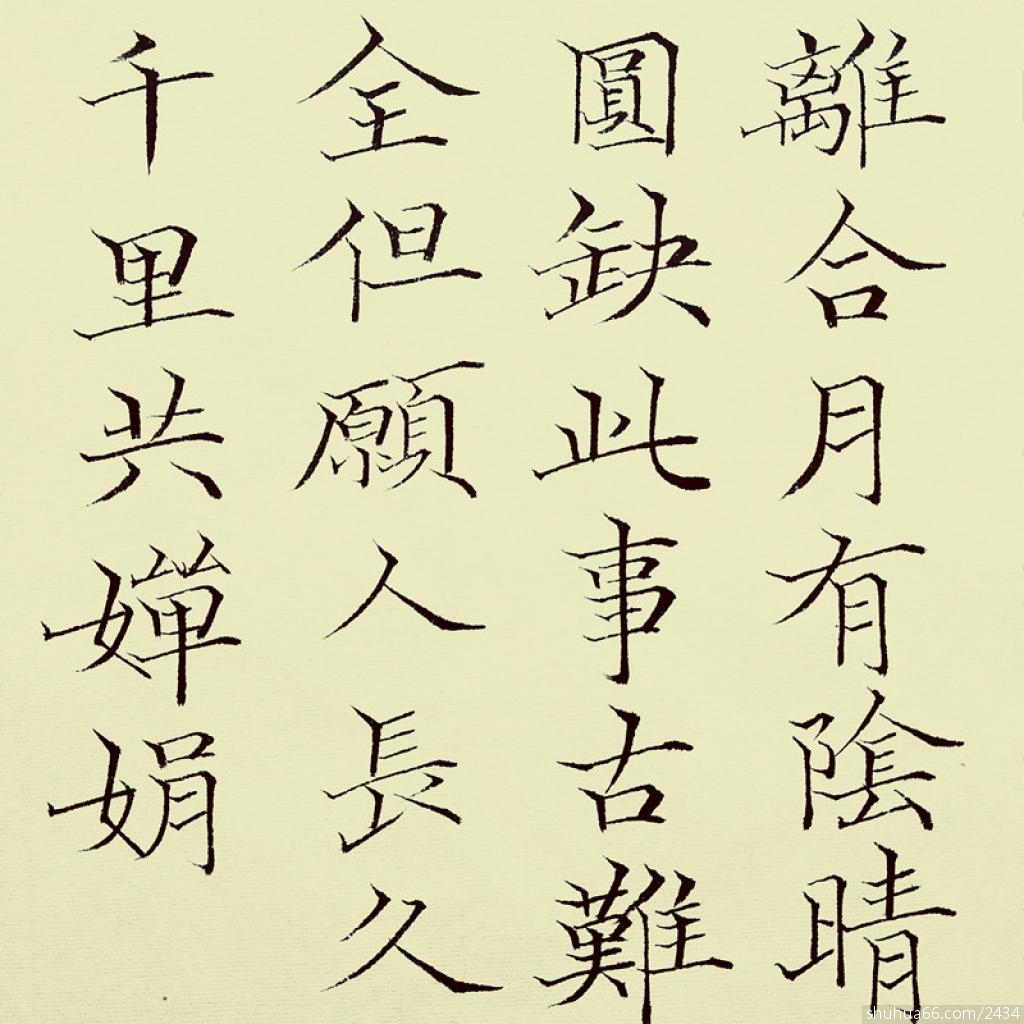 離合月有陰晴
圓缺此事古難
全但願人長久
千里共嬋娟
shuhua66.com/2434